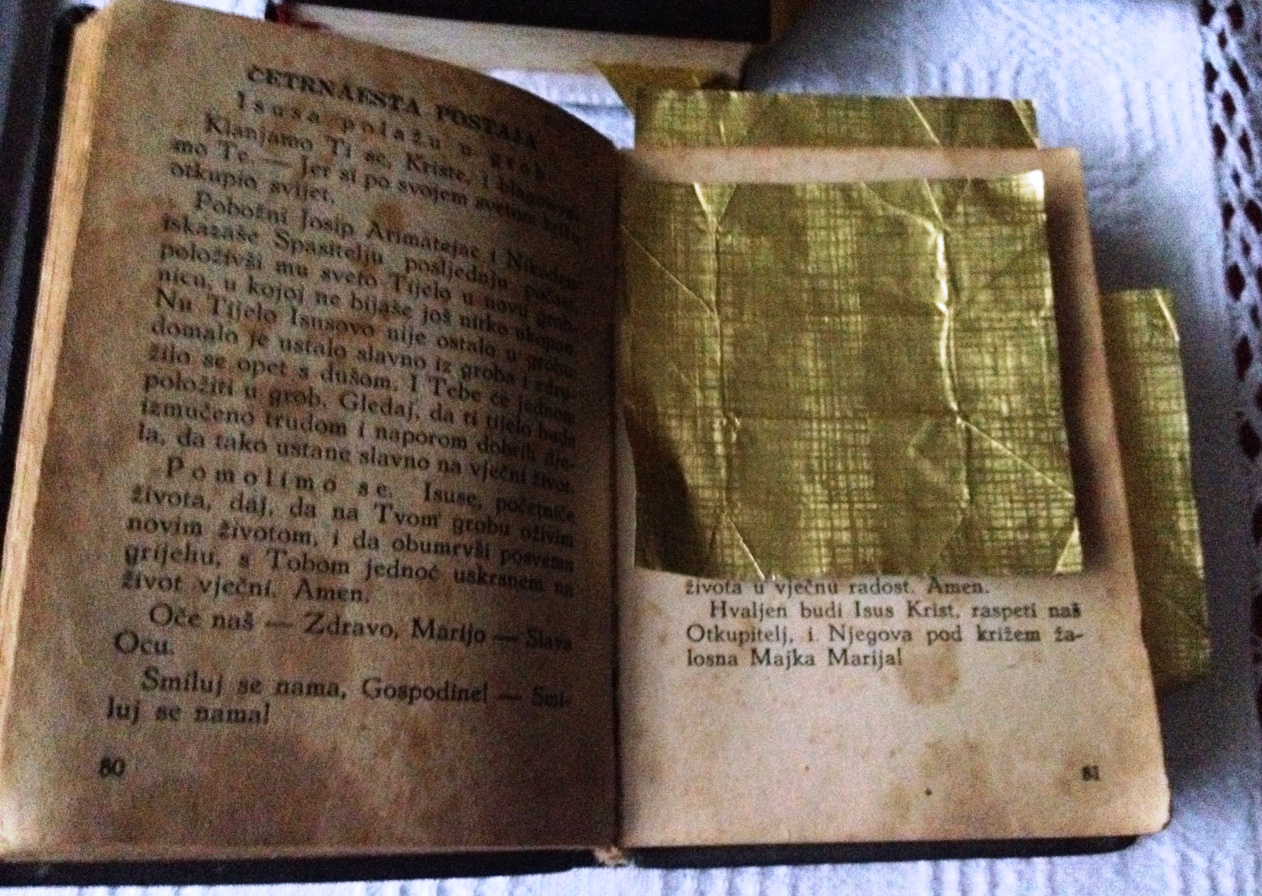 ČETRNAESTA POSTAJA
Isusa polažu u grob
Klanjamo Ti se, Kriste, i blagosivlja-
mo Te. — Jer si po svojem svetom križu
otkupio svijet.
Pobožni Josip Arimatejac i Nikodem
iskazaše Spasitelju posljednju počast,
položivši mu sveto Tijelo u novu grob-
nicu, u kojoj ne bijaše još nitko ukopan.
Nu Tijelo Isusovo nije ostalo u grobu:
domalo je ustalo slavno iz groba i zdru-
žilo se opet s dušom. I Tebe će jednom
položiti u grob. Gledaj, da ti tijelo bude
izmučeno trudom i naporom dobrih dje-
la, da tako ustane slavno na vječni život.
Pomolimo se. Isuse, početniče
života, daj, da na Tvom grobu oživim
novim životom, i da obumrvši posvema
grijehu, s Tobom jednoć uskrsnem na
život vječni. Amen.
Oče naš — Zdravo, Marijo — Slava
Ocu.
Smiluj se nama, Gospodine! — Smi-
luj se nama!
80
života u vječnu radost. Amen.
Hvaljen budi Isus Krist, raspeti naš
Otkupitelj, i Njegova pod križem ža-
losna Majka Marija!
81